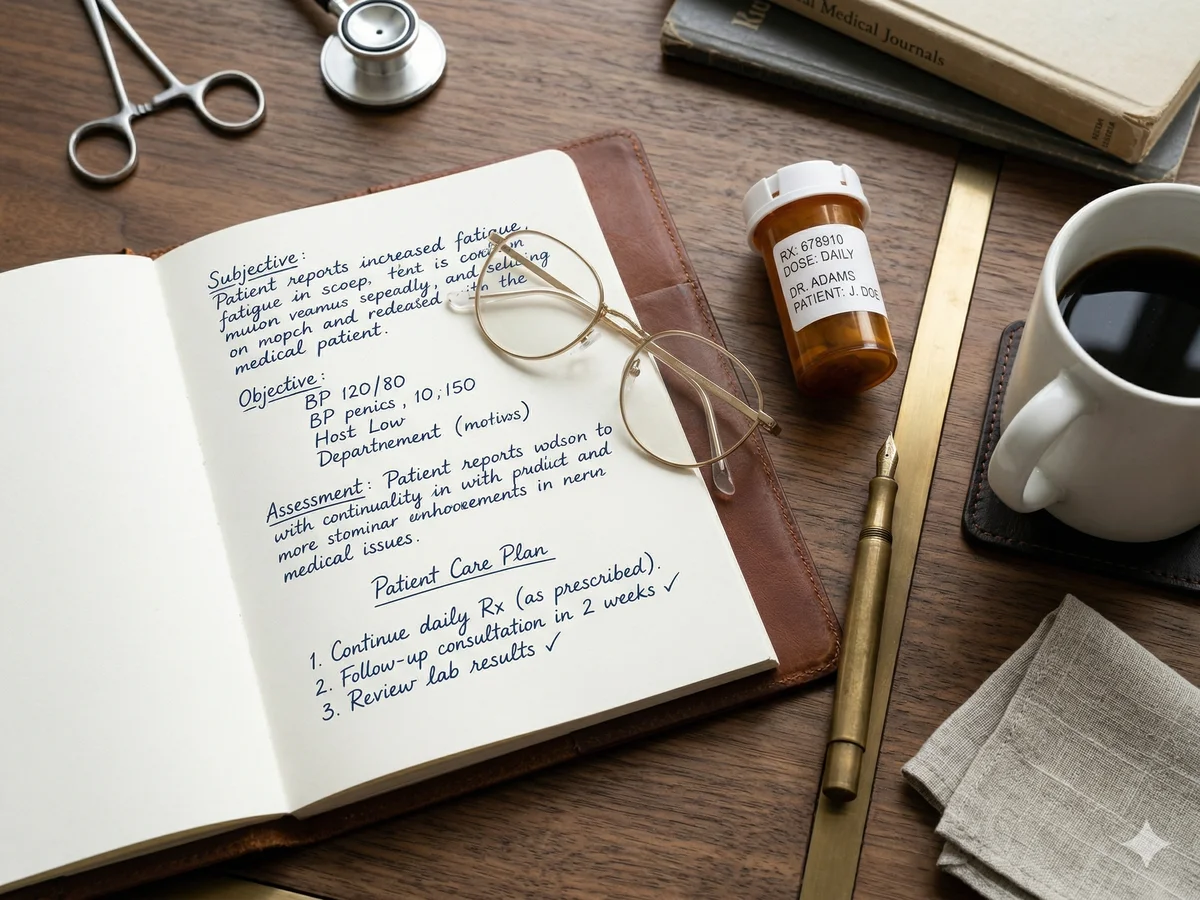 Subjective:
Patient reports increased fatigue,
fatigue in scoep, tent is
muion veamus sepeadly, and the
on mopch and redeased the
medical patient.
Objective:
BP 120/80
BP penics, 10,150
Host Low
Departnement (motivs)
Assessment: Patient reports wodson to
with continuality in with pruduct and
more stominar in nerun
medical issues.
Patient Care Plan
1. Continue daily Rx (as prescribed).
2. Follow-up consultation in 2 weeks ✓
3. Review lab results ✓
RX: 678910
DOSE: DAILY
DR. ADAMS
PATIENT: J. DOE
Medical Journals